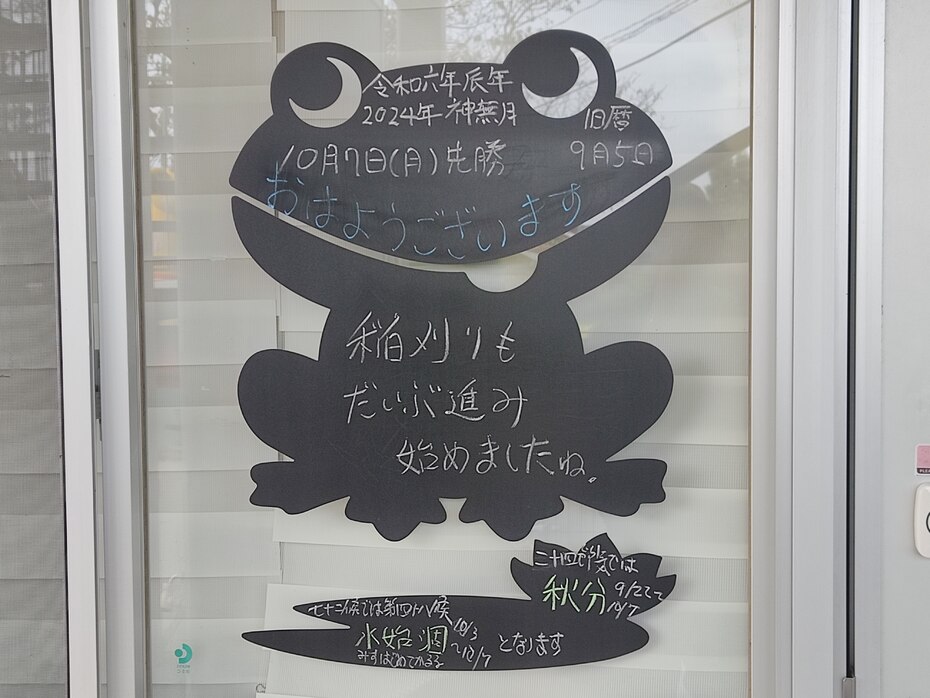 令和六年辰年
2024年 神無月
旧暦
10月7日(月)先勝
9月5日
おはようございます
稲刈りも
だいぶ進み
始めましたね。
二十四節気では
秋分 9/22~
10/7
七十二候では第四十八候
水始涸 10/3
~10/7
みずはじめてかるる
となります